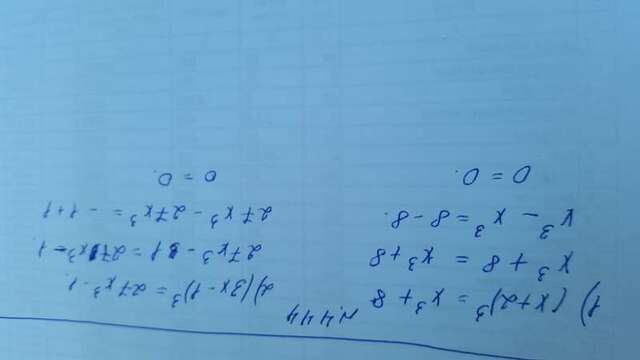 №444
1) (x+2)³ = x³ + 8
x³ + 8 = x³ + 8
x³ - x³ = 8 - 8.
0 = 0.
2) (3x - 1)³ = 27x³ - 1.
27x³ - 1 = 27x³ - 1.
27x³ - 27x³ = -1 + 1
0 = 0.